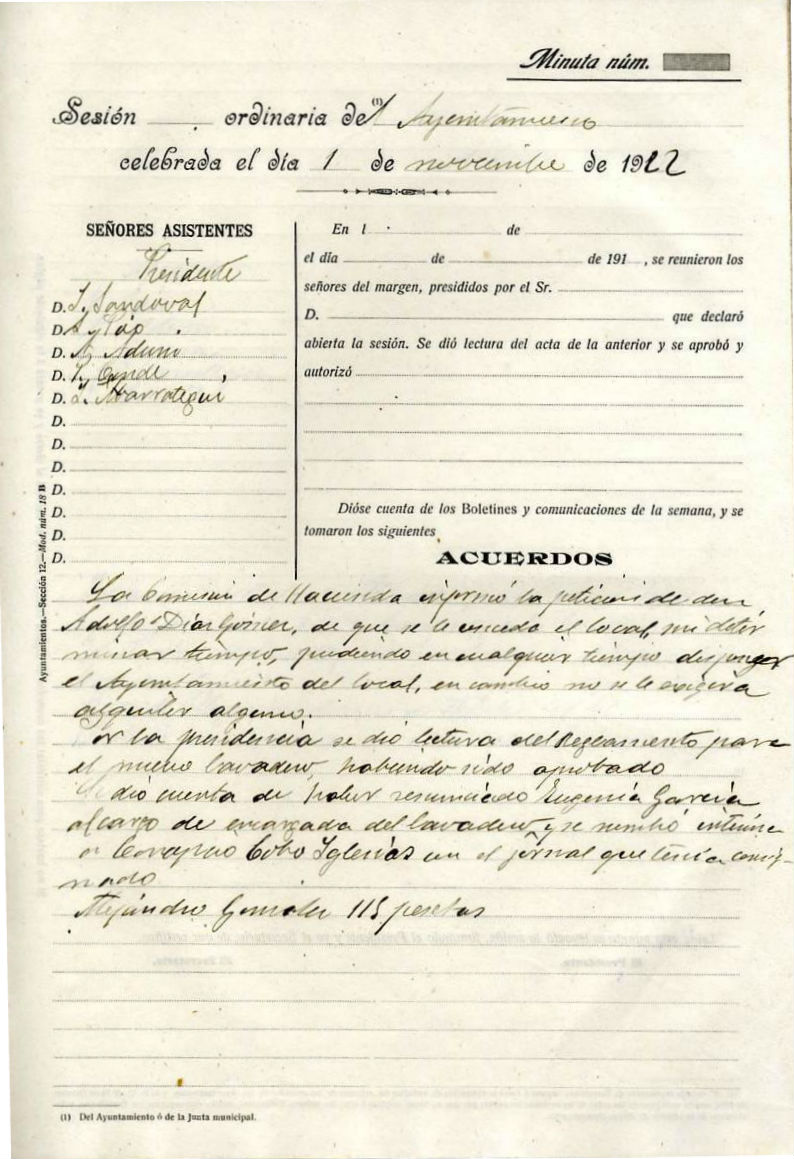 Minuta núm.
Sesión ordinaria de(1) l Ayuntamiento
celebrada el día 1 de noviembre de 1922
SEÑORES ASISTENTES
Presidente
D. Sandoval
D.
D. A.
D. Conde
D.
D.
D.
D.
D.
D.
D.
D.
En l de
el día de de 191 , se reunieron los
señores del margen, presididos por el Sr.
D. que declaró
abierta la sesión. Se dió lectura del acta de la anterior y se aprobó y
autorizó
Dióse cuenta de los Boletines y comunicaciones de la semana, y se
tomaron los siguientes
ACUERDOS
La Comisión de Hacienda informó la petición de don
Adolfo Díaz Gómez, de que se le conceda el local, sin deter
minar tiempo, pudiendo en cualquier tiempo disponer
el Ayuntamiento del local, en cambio no se le exigirá
alquiler alguno.
or la presidencia se dió lectura del Reglamento para
el nuevo lavadero, habiendo sido aprobado
Se dió cuenta de haber renunciado Eugenia García
al cargo de encargada del lavadero, y se nombró interina
a Cobo Iglesias con el jornal que tenía consig-
nado
Alejandro González 115 pesetas
Ayuntamientos.—Sección 12.—Mod. núm. 18 B
(1) Del Ayuntamiento ó de la Junta municipal.